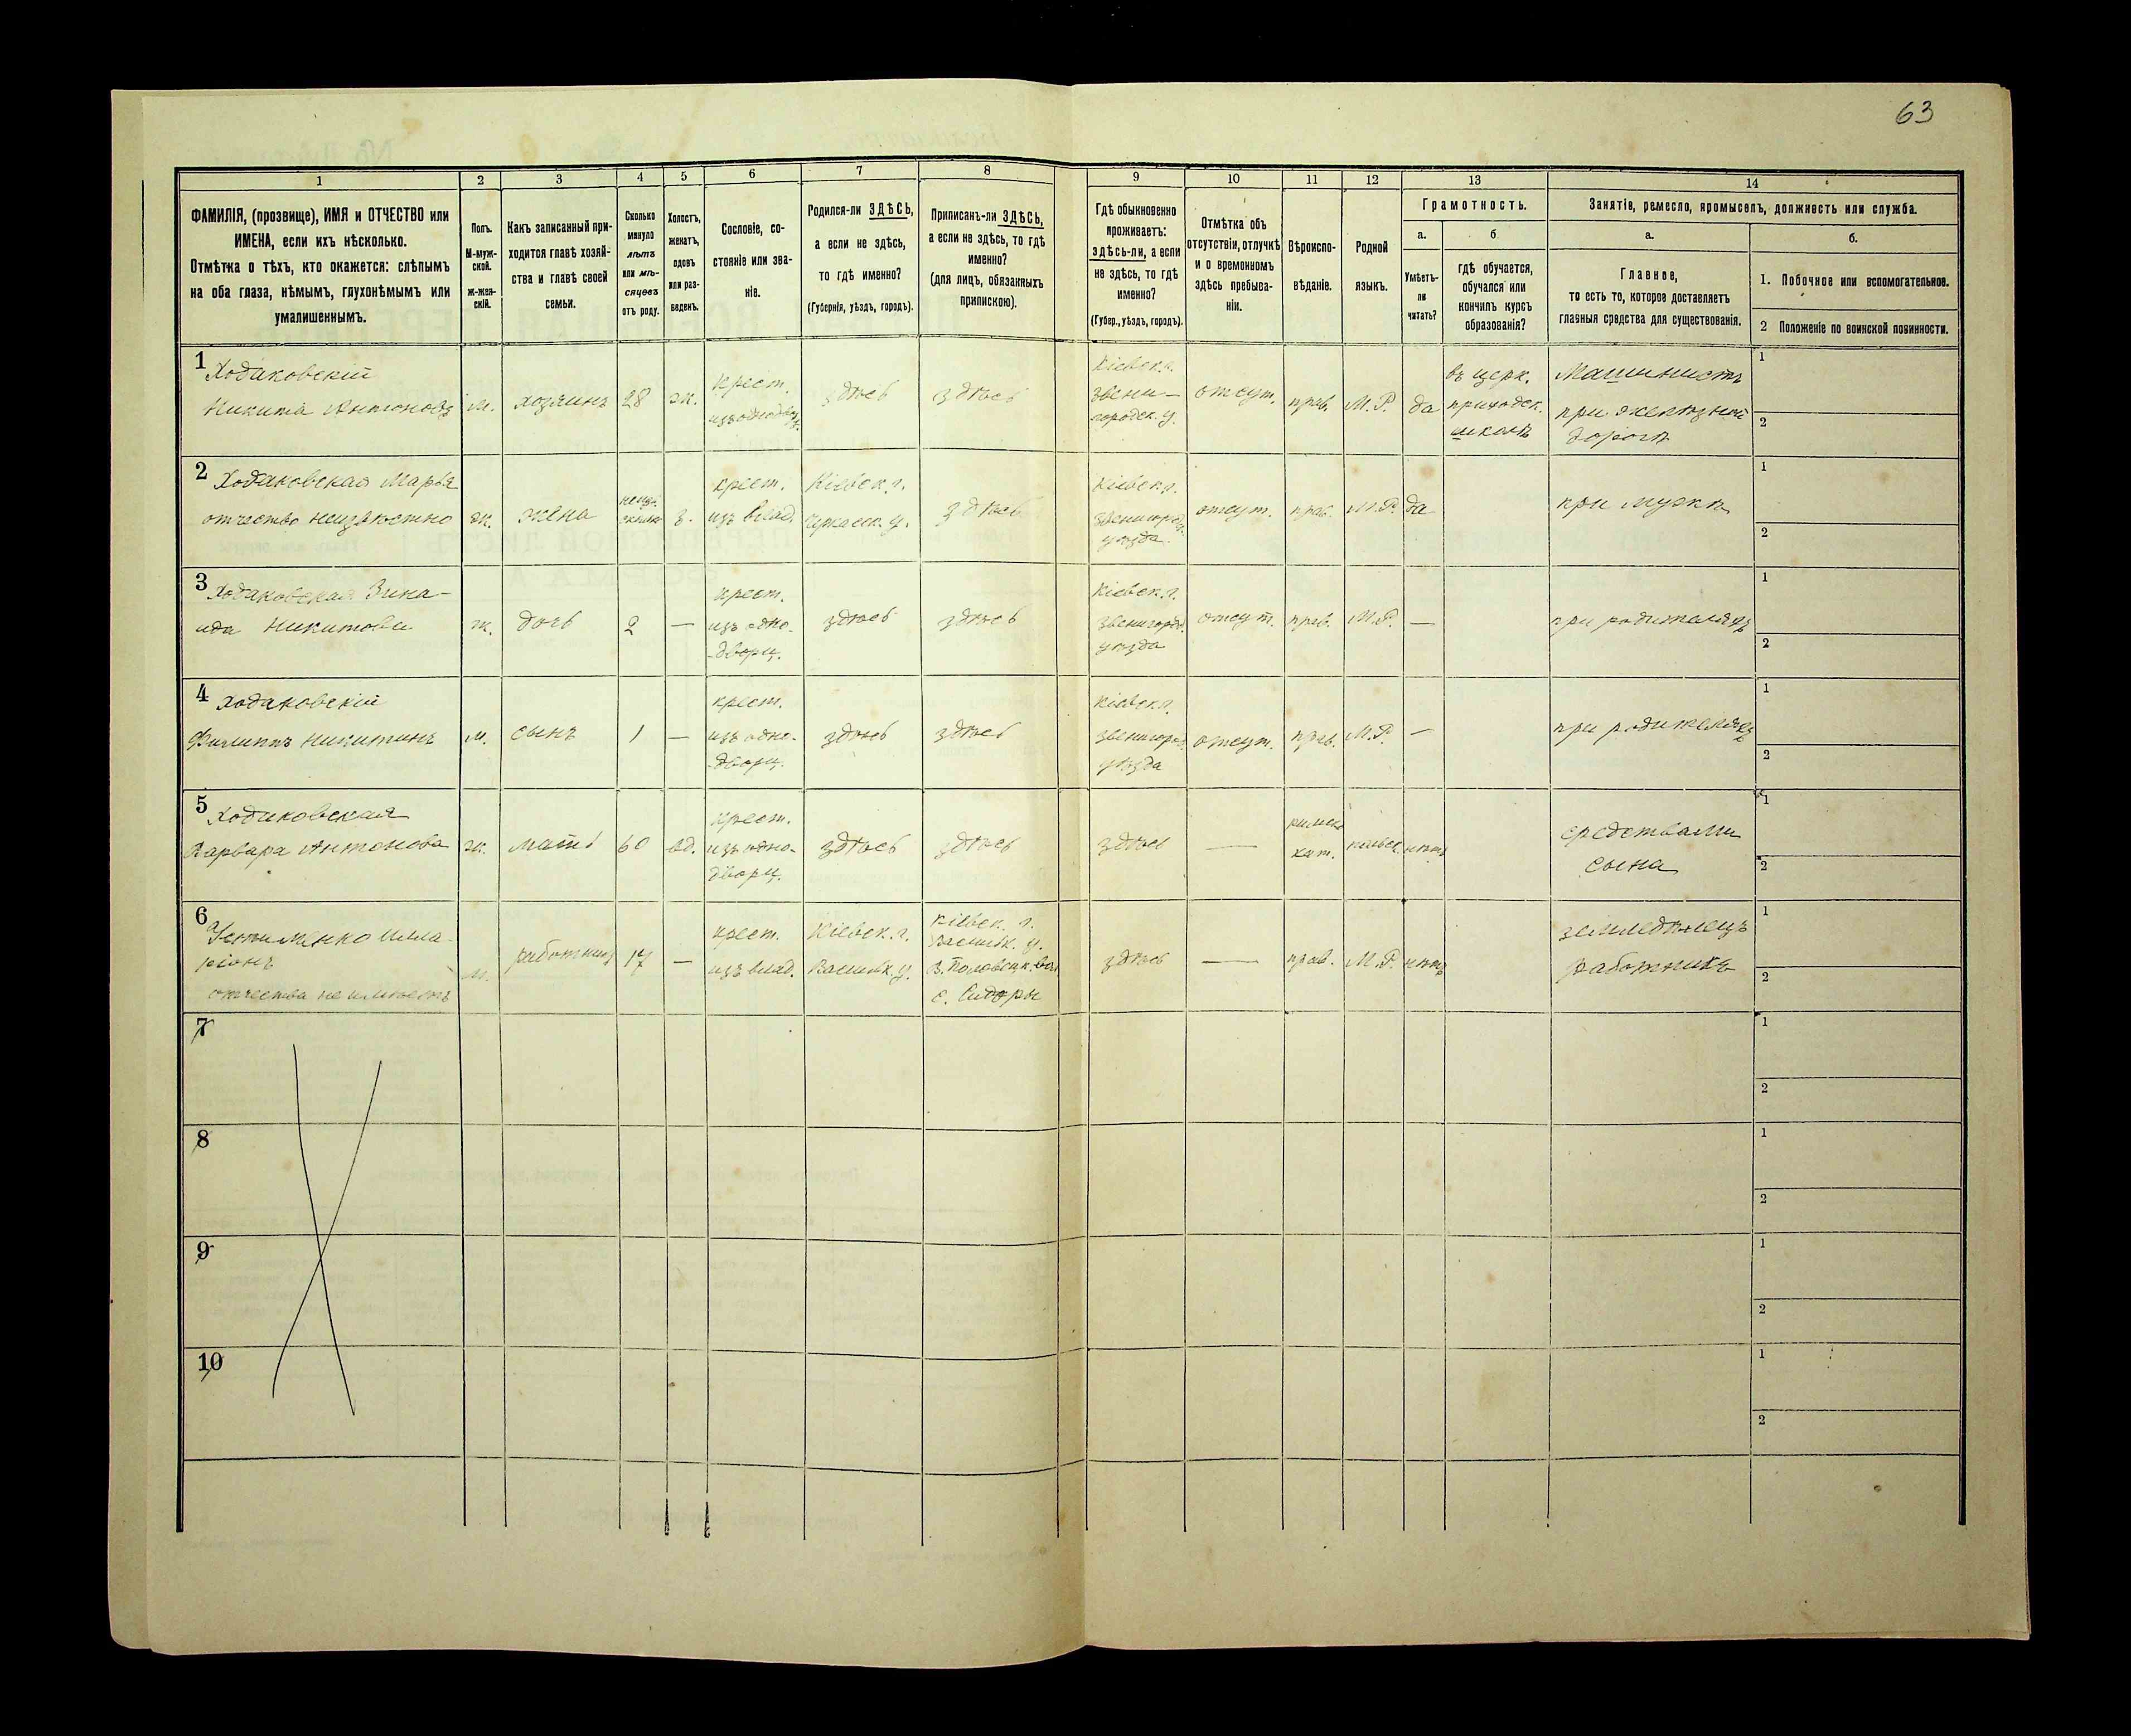 63
1
2
3
4
5
6
7
8
9
10
11
12
13
14
ФАМИЛІЯ, (прозвище), ИМЯ и ОТЧЕСТВО или
ИМЕНА, если ихъ нѣсколько.
Отмѣтка о тѣхъ, кто окажется: слѣпымъ
на оба глаза, нѣмымъ, глухонѣмымъ или
умалишеннымъ.
Полъ.
М-муж-
ской.
Ж-жен-
скій.
Какъ записанный при-
ходится главѣ хозяй-
ства и главѣ своей
семьи.
Сколько
минуло
лѣтъ
или мѣ-
сяцевъ
отъ роду.
Холостъ,
женатъ,
вдовъ
или раз-
веденъ.
Сословіе, со-
стояніе или зва-
ніе.
Родился-ли ЗДѢСЬ,
а если не здѣсь,
то гдѣ именно?
(Губернія, уѣздъ, городъ).
Приписанъ-ли ЗДѢСЬ,
а если не здѣсь, то гдѣ
именно?
(для лицъ, обязанныхъ
припискою).
Гдѣ обыкновенно
проживаетъ:
здѣсь-ли, а если
не здѣсь, то гдѣ
именно?
(Губер., уѣздъ, городъ).
Отмѣтка объ
отсутствіи, отлучкѣ
и о временномъ
здѣсь пребыва-
ніи.
Вѣроиспо-
вѣданіе.
Родной
языкъ.
Грамотность.
а.
Умѣетъ-
ли
читать?
б
гдѣ обучается,
обучался или
кончилъ курсъ
образованія?
Занятіе, ремесло, промыселъ, должность или служба.
а.
Главное,
то есть то, которое доставляетъ
главныя средства для существованія.
б.
1. Побочное или вспомогательное.
2 Положеніе по воинской повинности.
1 Ходаковскій
Никита Антоновъ
м.
хозяинъ
28
ж.
крест.
изъ однодворц.
здѣсь
здѣсь
Кіевск. г.
звени-
городск. у.
отсут.
прав.
М. Р.
да
въ церк.
приходск.
школѣ
Машинистъ
при желѣзной
дорогѣ
1
2
2 Ходаковская Марья
отчество неизвѣстно
ж.
жена
з.
крест.
изъ влад.
Кіевск. г.
Черкасск. у.
здѣсь
Кіевск. г.
звенигород.
уѣзда.
отсут.
прав.
М. Р.
да
при мужѣ
1
2
3 Ходаковская Зина-
ида Никитова
ж.
дочь
2
—
крест.
изъ одно-
дворц.
здѣсь
здѣсь
Кіевск. г.
звенигород.
уѣзда
отсут.
прав.
М. Р.
—
при родителяхъ
1
2
4 Ходаковскій
Филиппъ Никитинъ
м.
сынъ
1
—
крест.
изъ одно-
дворц.
здѣсь
здѣсь
Кіевск. г.
звенигород.
уѣзда
отсут.
прав.
М. Р.
—
при родителяхъ
1
2
5 Ходаковская
Варвара Антонова
ж.
мать
60
вд.
крест.
изъ одно-
дворц.
здѣсь
здѣсь
здѣсь
—
римск.
кат.
польск.
нѣтъ
средствами
сына
1
2
6 Устименко Илла-
ріонъ
отчества не имѣетъ
м.
работникъ
17
—
крест.
изъ влад.
Кіевск. г.
Васильк. у.
Кіевск. г.
Васильк. у.
В. Половецк. вол.
с. Сидоры
здѣсь
—
прав.
М. Р.
нѣтъ
земледѣлецъ
работникъ
1
2
7
1
2
8
1
2
9
1
2
10
1
2